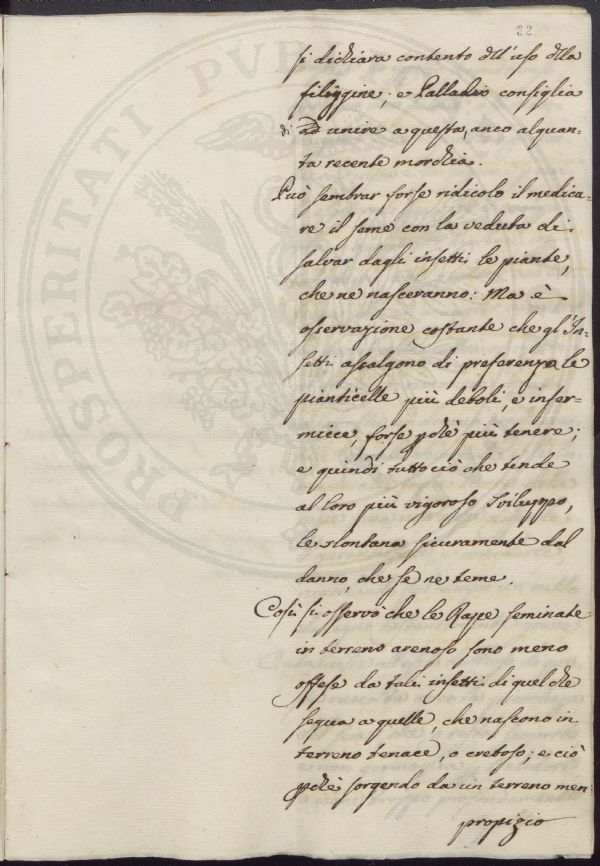 82
si dichiara contento dell'uso della
filiggine; e Palladio consiglia
di ad unire a questa, anco alquan=
ta recente morchia.
Può sembrar forse ridicolo il medica=
re il seme con la veduta di
salvar dagli insetti le piante,
che ne nasceranno: Ma è
osservazione costante che gl'In=
setti assalgono di preferenza le
pianticelle più deboli, e infer=
micce, forse pchè più tenere;
e quindi tutto ciò che tende
al loro più vigoroso Sviluppo,
le slontana sicuramente dal
danno, che se ne teme.
Così si osservò che le Rape seminate
in terreno arenoso sono meno
offese da tali insetti di quel che
segua a quelle, che nascono in
terreno tenace, o cretoso; e ciò
pchè sorgendo da un terreno men
propizio
PROSPERITATI PUBLICAE